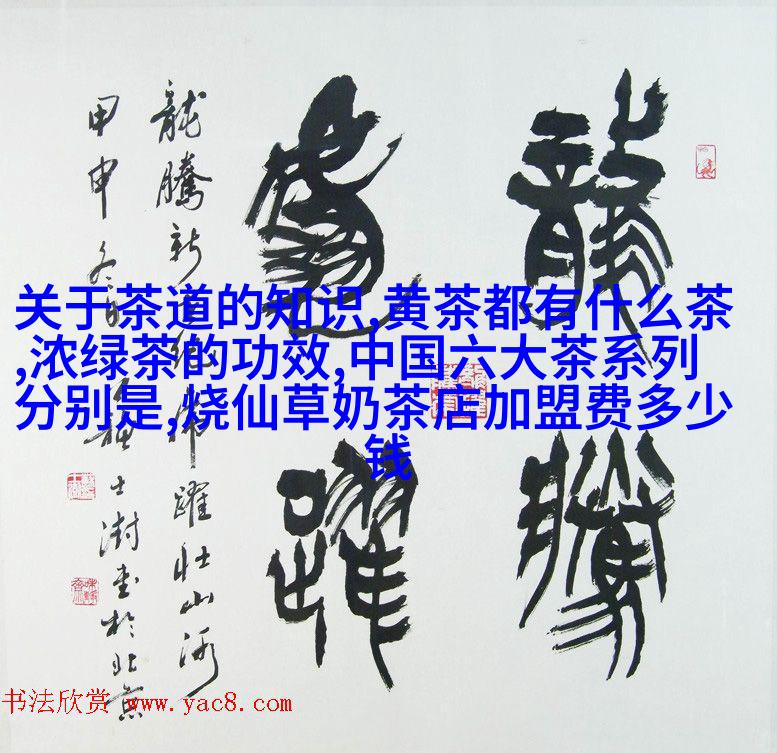 龍騰
虎躍
龍騰新紀虎躍壯山河
甲申冬日士澍書於北京
关于茶道的知识,黄茶都有什么茶
,浓绿茶的功效,中国六大茶系列
分别是,烧仙草奶茶店加盟费多少
钱
书法欣赏 www.yac8.com